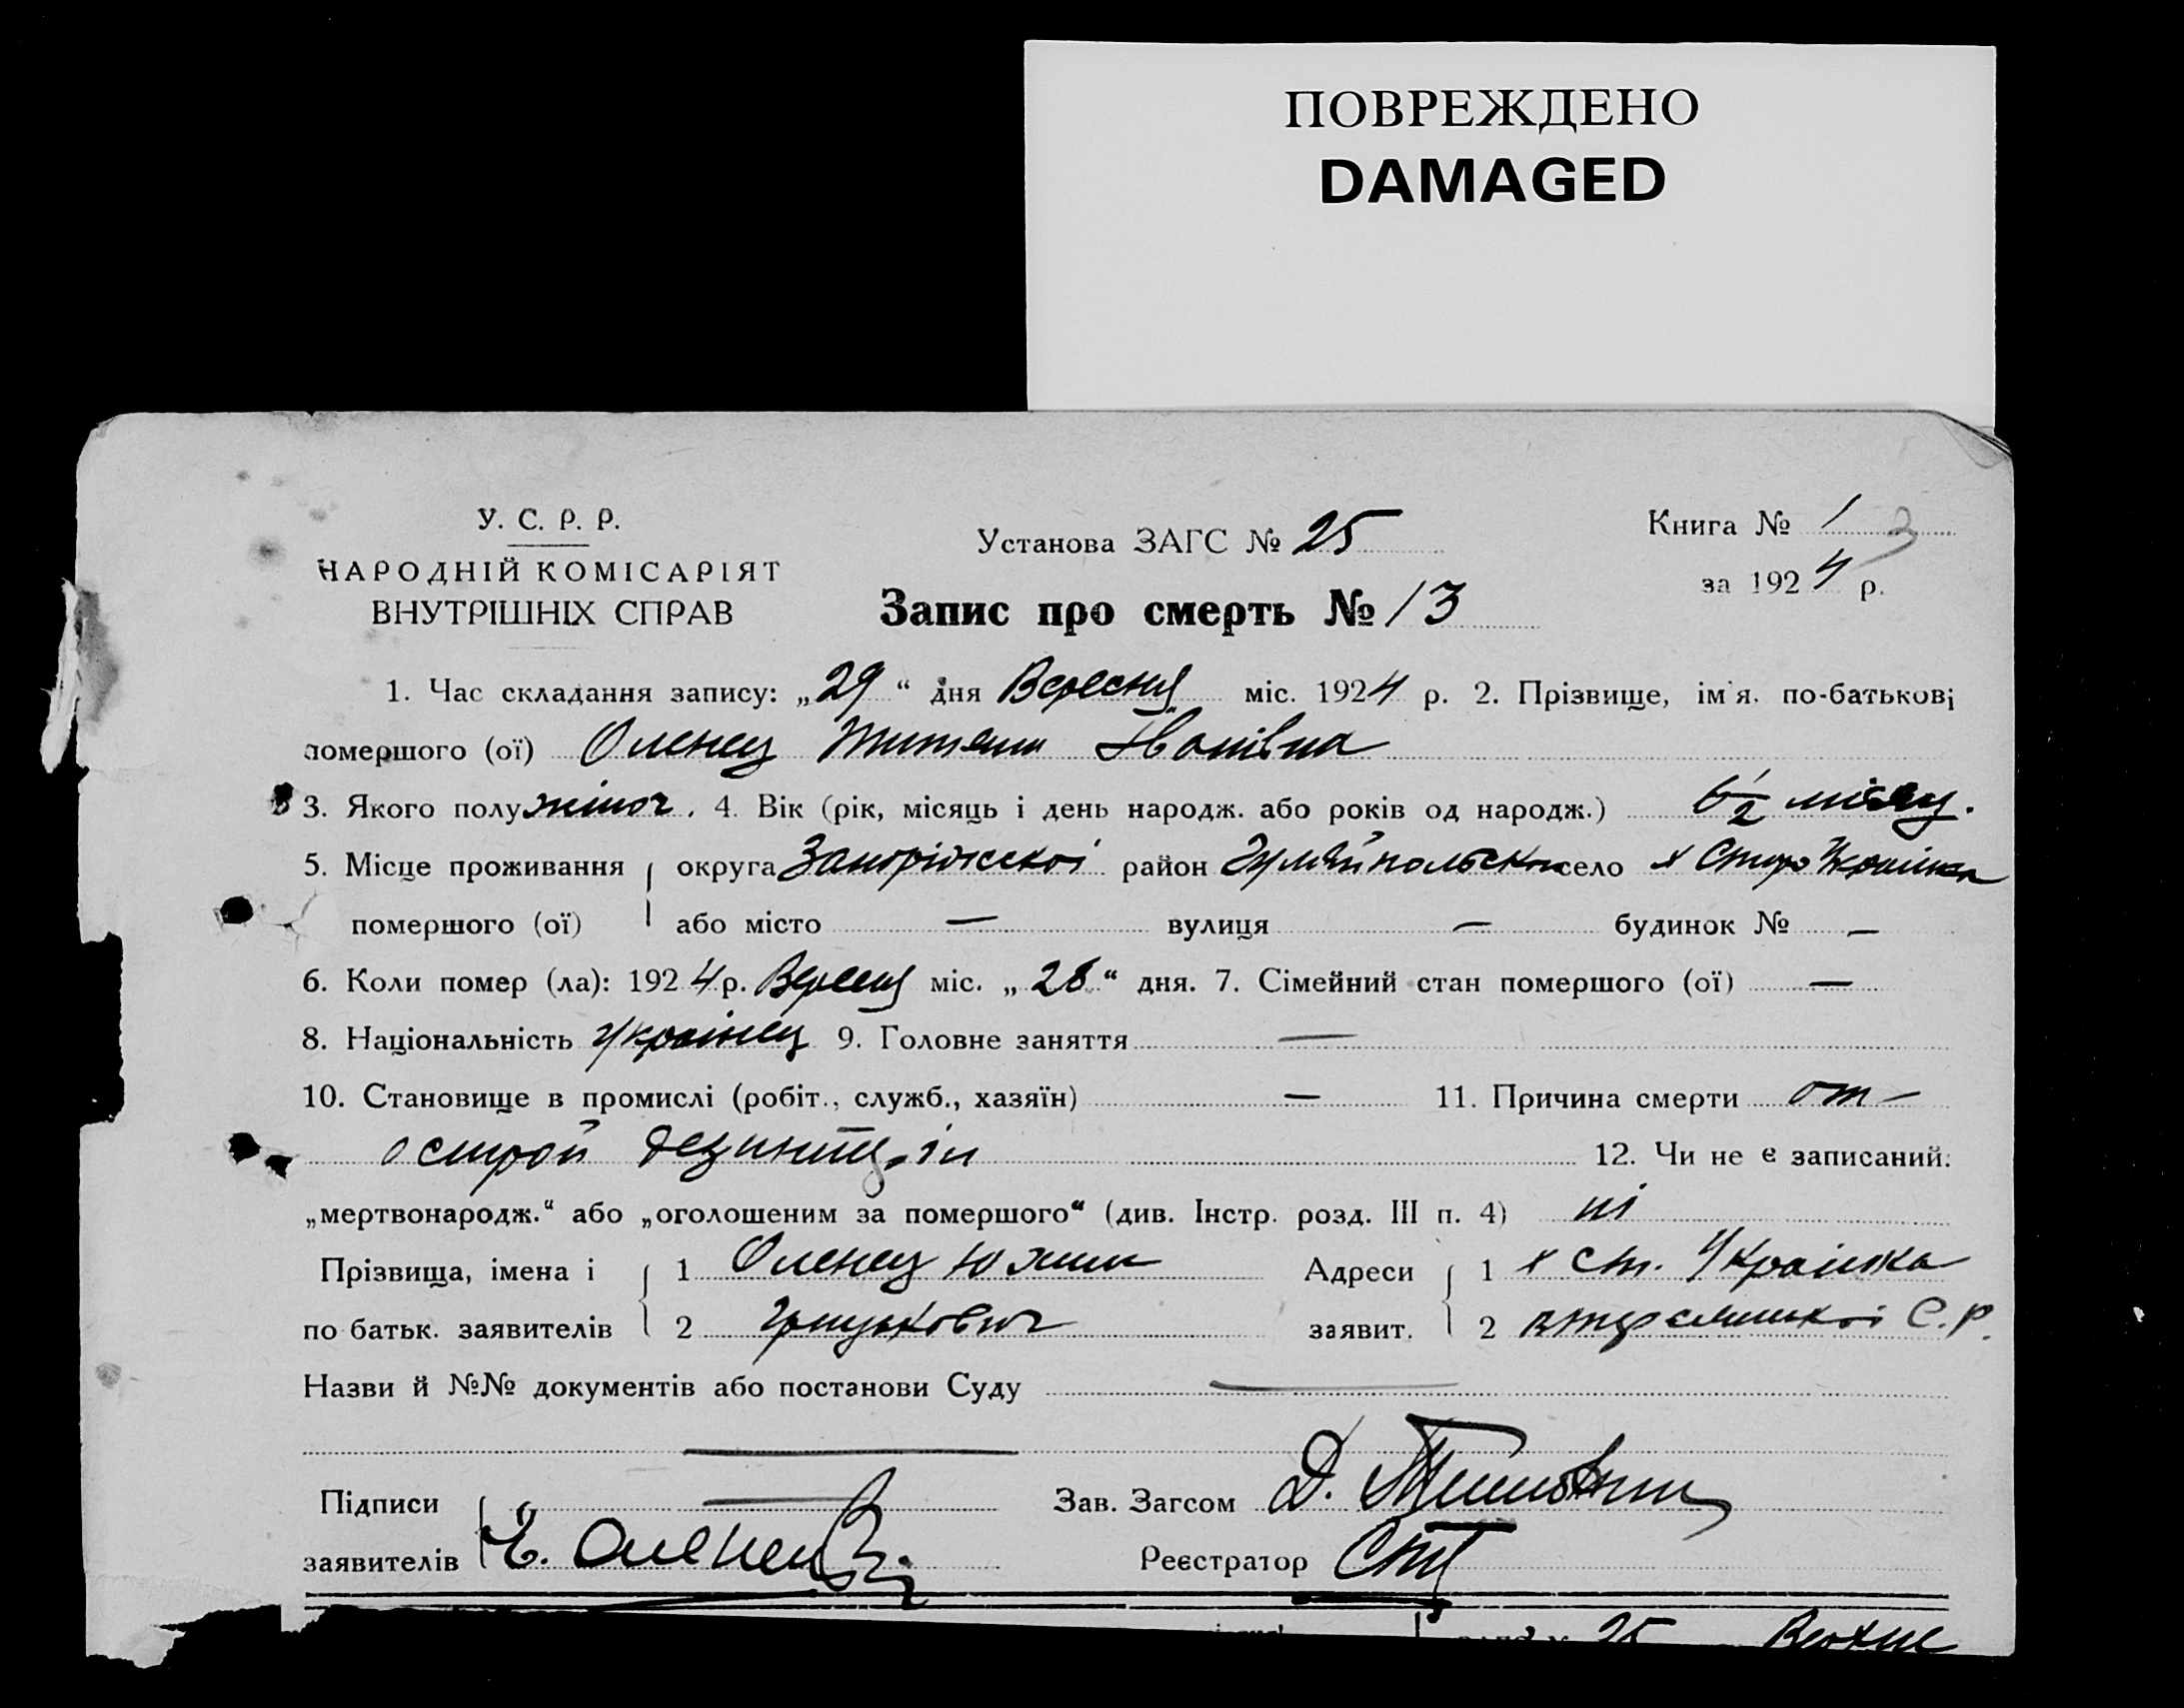 ПОВРЕЖДЕНО
DAMAGED
У. С. Р. Р.
НАРОДНІЙ КОМІСАРІЯТ
ВНУТРІШНІХ СПРАВ
Установа ЗАГС № 25
Книга № 1 2
за 1924 р.
Запис про смерть № 13
1. Час складання запису: „29“ дня Вересня міс. 1924 р. 2. Прізвище, ім'я, по-батькові
помершого (ої) Оленец
3. Якого полу жіноч. 4. Вік (рік, місяць і день народж. або років од народж.) 6 1/2 місяц.
5. Місце проживання округа Запоріжскої район село х Старо Українка
помершого (ої) або місто — вулиця — будинок № —
6. Коли помер (ла): 1924 р. Вересня міс. „28“ дня. 7. Сімейний стан помершого (ої) —
8. Національність Українец 9. Головне заняття —
10. Становище в промислі (робіт., служб., хазяїн) — 11. Причина смерти от
острой
12. Чи не є записаний:
„мертвонародж.“ або „оголошеним за помершого“ (див. Інстр. розд. III п. 4) ні
Прізвища, імена і 1 Оленец Адреси 1 х Ст. Українка
по батьк. заявителів 2 заявит. 2 С.Р.
Назви й №№ документів або постанови Суду —
Підписи
Зав. Загсом Д.
заявителів Оленец
Реєстратор
25